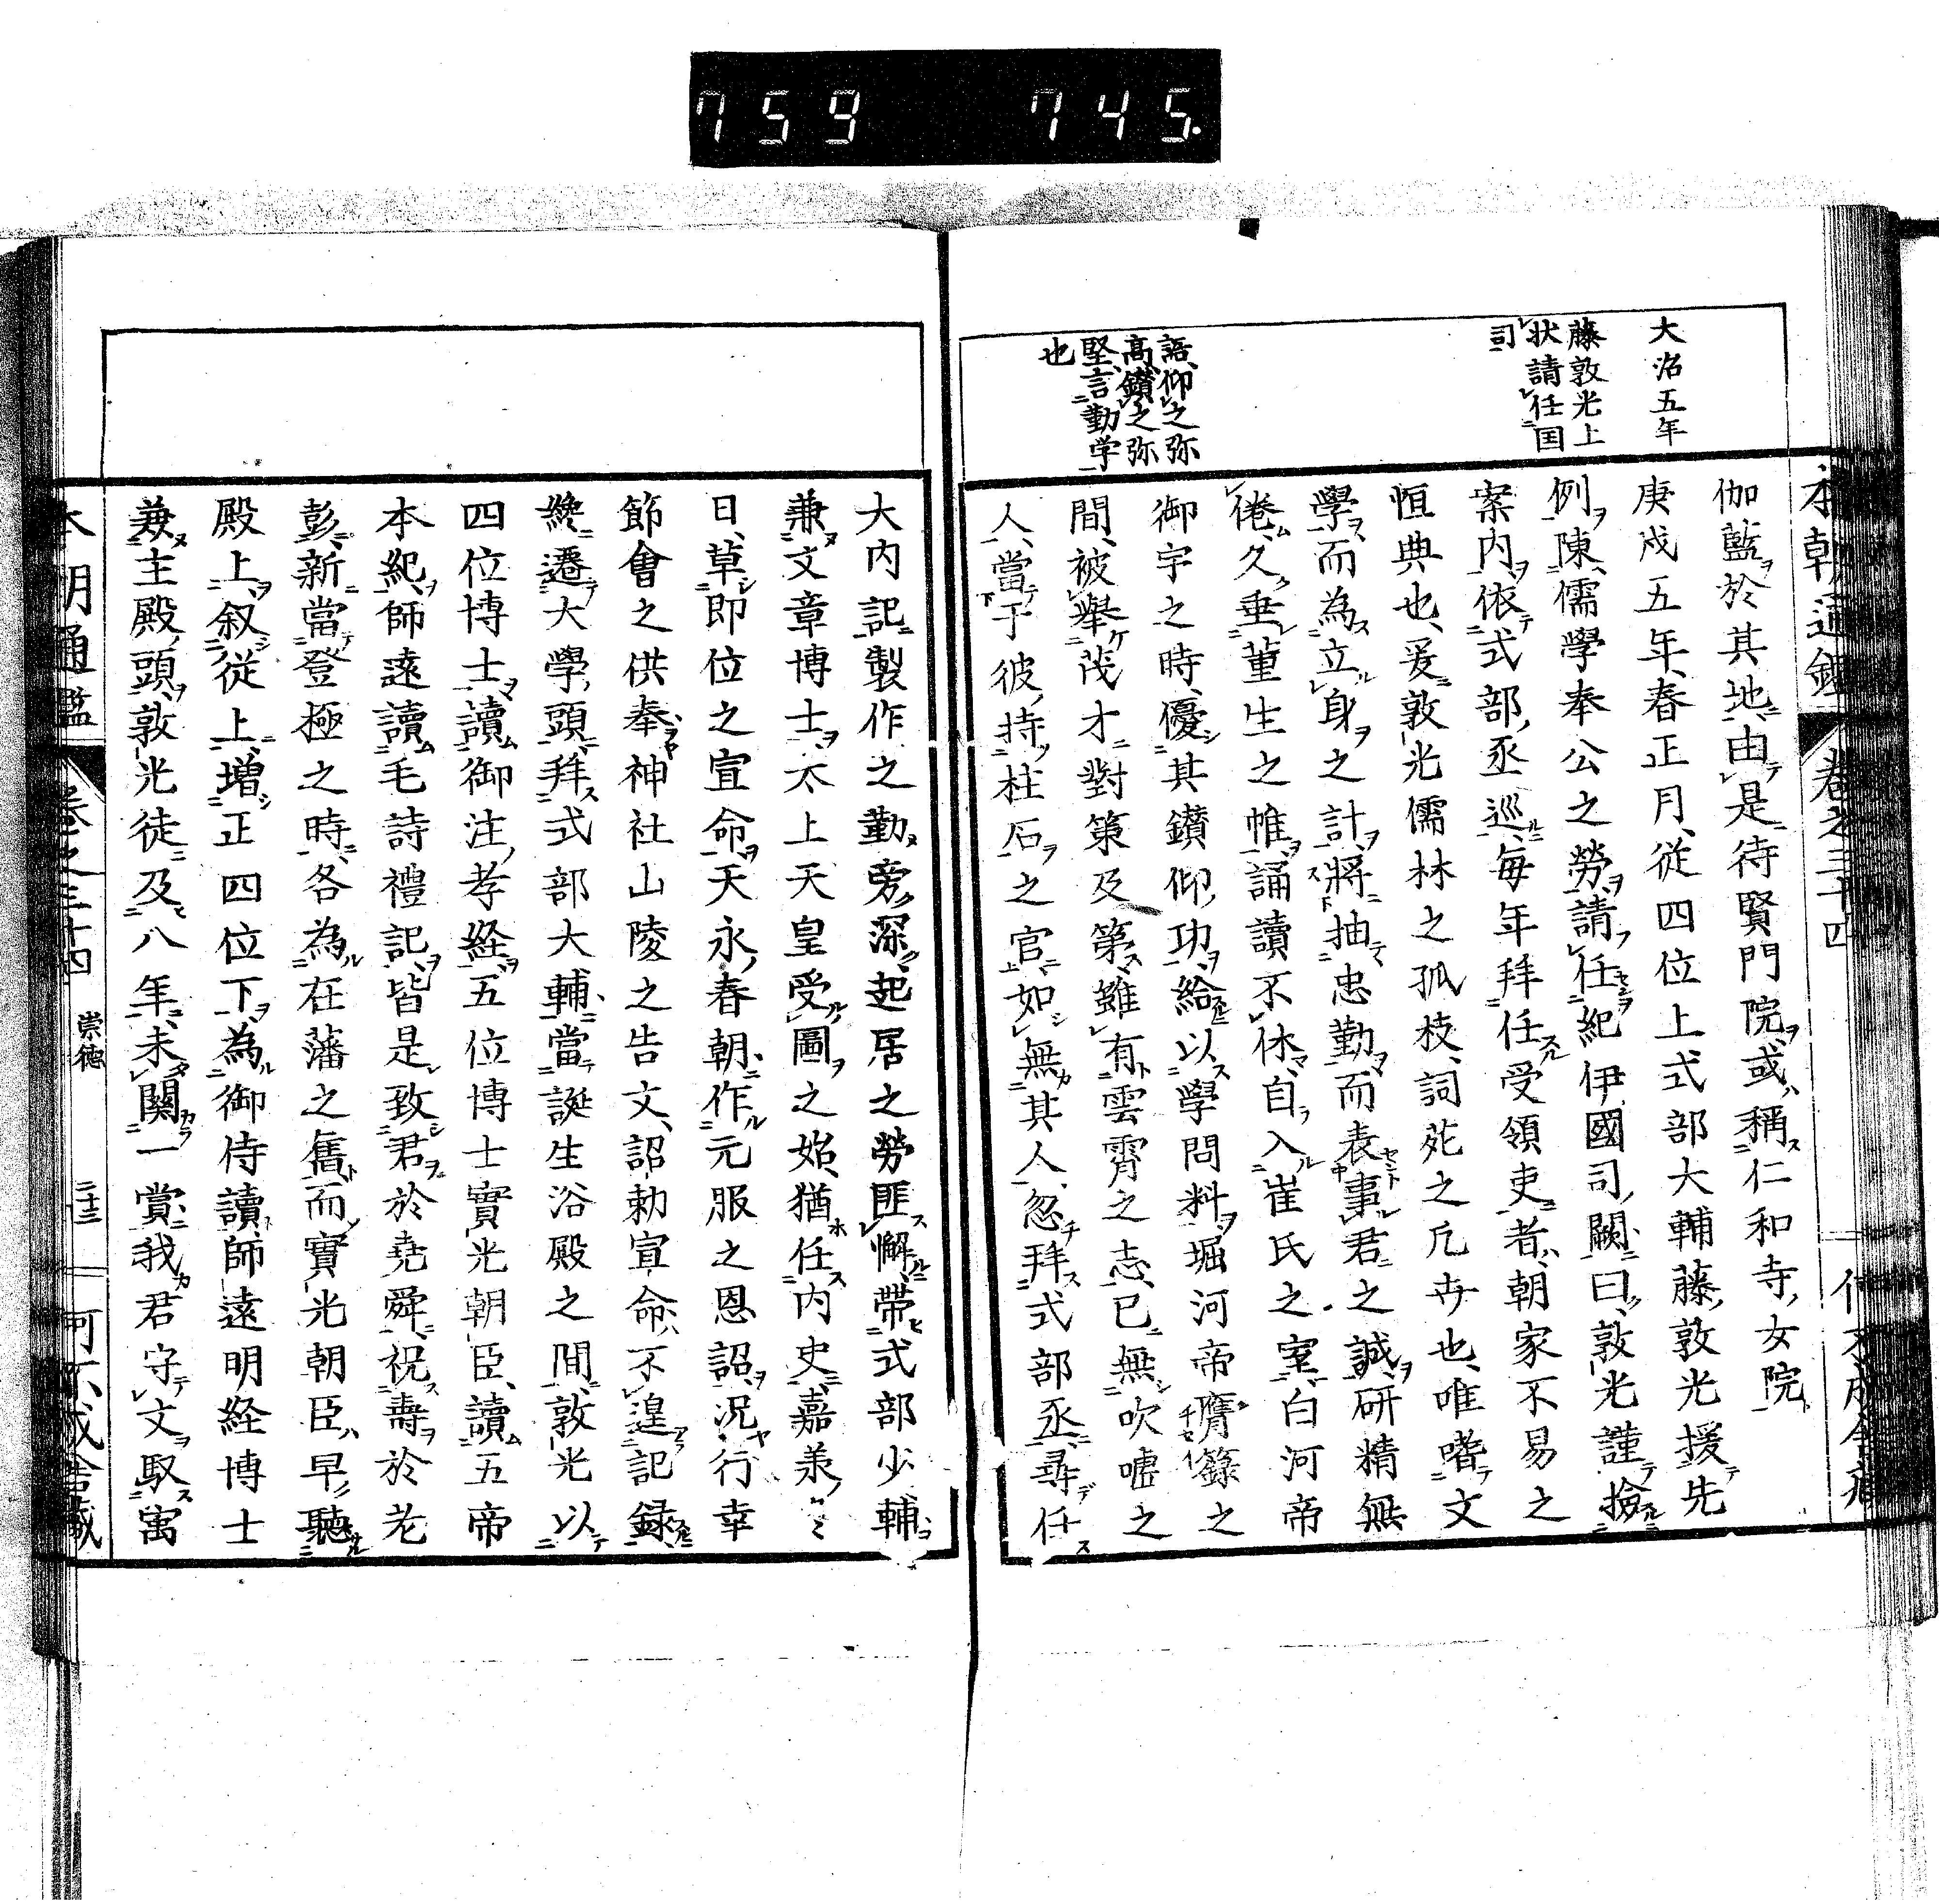 759 745.
大治五年
藤敦光上
状請任国
司
語仰之弥
高鑽之弥
堅言勤学
也
本朝通鑑 卷之三十四
伽藍於其地由是待賢門院或稱仁和寺女院
庚戌五年春正月従四位上式部大輔藤敦光援先
例陳儒學奉公之勞請任紀伊國司闕曰敦光謹撿
案内依式部丞巡毎年拜任受領吏者朝家不易之
恒典也爰敦光儒林之孤枝詞苑之凡卉也唯嗜文
學而為立身之計將抽忠勤而表事君之誠研精無
倦久垂董生之帷誦讀不休自入崔氏之室白河帝
御宇之時優其鑚仰功給以學問料堀河帝膺籙之
間被舉茂才對策及第雖有雲霄之志已無吹嘘之
人當于彼持柱石之官如無其人忽拜式部丞尋任
大内記製作之勤旁深起居之勞匪懈帶式部少輔
兼文章博士太上天皇受圖之始猶任内史嘉承〻
日草即位之宣命天永春朝作元服之恩詔况行幸
節會之供奉神社山陵之告文詔勅宣命不遑記録
纔遷大學頭拜式部大輔當誕生浴殿之間敦光以
四位博士讀御注孝経五位博士實光朝臣讀五帝
本紀師遠讀毛詩禮記皆是致君於堯舜祝壽於老
彭新當登極之時各為在藩之舊而實光朝臣早聽
殿上叙従上增正四位下為御侍讀師遠明経博士
兼主殿頭敦光徒及八年未關一賞我君守文馭寓
本朝通鑑 卷之三十四 崇德 二十三